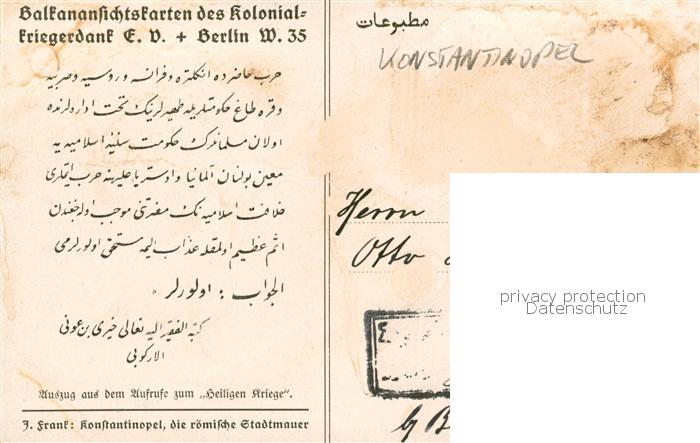 Balkanansichtskarten des Kolonial-
kriegerdank E. V. + Berlin W. 35
حرب حاضرده انكلتره و فرانسه و روسيه و صربيه
و قره طاغ حكومتلريله ظهيرلرينك تحت اداره لرنده
اولان مسلمانلرك حكومت سنيۀ اسلاميه يه
معين بولنان آلمانيا و اوستريا عليهنه حرب ايتملرى
خلافت اسلاميه نك مضرتنى موجب اوله جغندن
اثم عظيم اولمقله عذاب اليمه مستحق اولورلرمى
الجواب : اولورلر
كتبه الفقير اليه تعالى خيرى بن عونى
الاركوبى
Auszug aus dem Aufrufe zum „Heiligen Kriege“.
J. Frank: Konstantinopel, die römische Stadtmauer
مطبوعات
KONSTANTINOPEL
Herrn
Otto
privacy protection
Datenschutz